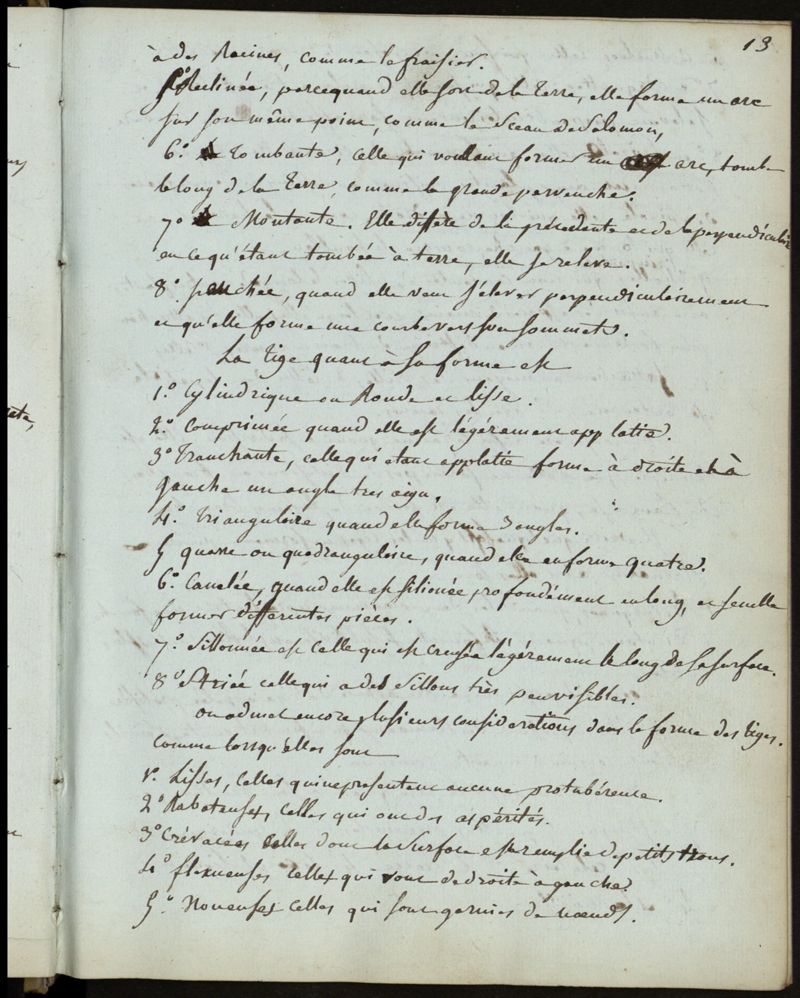 13
à des Racines, comme le fraisier.
5º Reclinée, parcequand elle sort de la terre, elle forme un arc
sur son même point, comme le Sceau de Salomon,
6.º tombante, celle qui voulant former un arc, tombe
le long de la terre, comme la grande pervenche.
7º Montante. Elle diffère de la précédente et de la perpendiculaire
en ce qu'étant tombée à terre, elle se releve.
8º. penchée, quand elle veut s'élever perpendiculairement
et qu'elle forme une courbe vers son sommet.
La tige quant à sa forme est
1.º Cylindrique ou Ronde et lisse.
2.º Comprimée quand elle est légérement applatie.
3º Tranchante, celle qui étant applatie forme à droite et à
gauche un angle tres aigu.
4.º Triangulaire quand elle forme 3 angles.
5 quarré ou quadrangulaire, quand elle en forme quatre.
6º Canelée, quand elle est sillonée profondément en long, et semble
former différentes pièces.
7.º Sillonnée est celle qui est creusée légérement le long de sa surface.
8º Striée celle qui a des sillons très peu visibles.
on admet encore plusieurs considerations dans la forme des tiges.
comme lorsqu'elles sont
1º. Lisses, celles qui ne presentent aucune protubérence.
2º Raboteuses, celles qui ont des aspérités.
3º Crévacées celles dont la surface est remplie de petits trous.
4º flexueuses celles qui vont de droite à gauche.
5.º Noueuses celles qui sont garnies de nœuds.